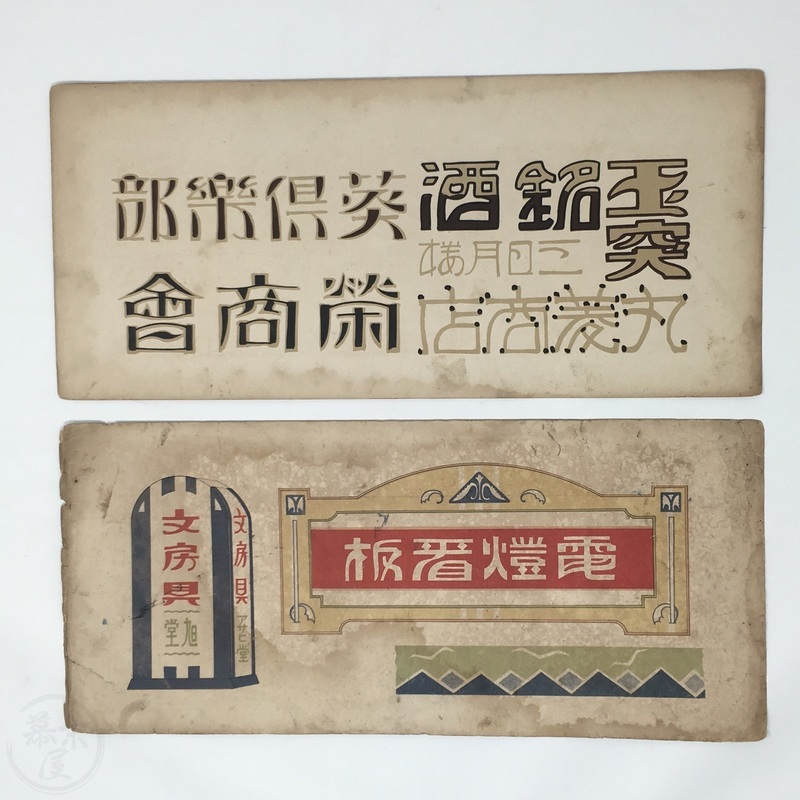 玉突
銘酒
三日月楼
丸菱商店
葵倶樂部
榮商會
電燈看板
文房具
アサヒ堂
文房具
旭堂